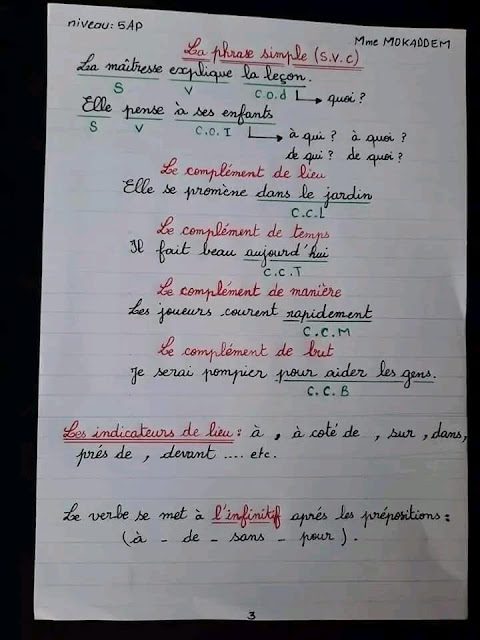 niveau: 5AP
Mme MOKADDEM
La phrase simple (S.V.C)
La maîtresse explique la leçon.
S V C.O.d quoi ?
Elle pense à ses enfants
S V C.O.I à qui ? à quoi ?
de qui ? de quoi ?
Le complément de lieu
Elle se promène dans le jardin
C.C.L
Le complément de temps
Il fait beau aujourd'hui
C.C.T
Le complément de manière
Les joueurs courent rapidement
C.C.M
Le complément de but
Je serai pompier pour aider les gens.
C.C.B
Les indicateurs de lieu : à , à coté de , sur , dans,
prés de , devant .... etc.
Le verbe se met à l'infinitif aprés les prépositions :
(à - de - sans - pour ).
3